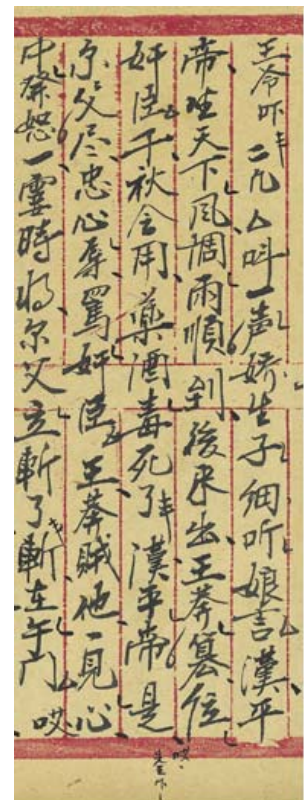 王令吓 二凡 叫一声嬌生子細听娘言漢平
帝坐天下風調雨順到後來出王莽篡位
奸臣千秋会用藥酒毒死了漢平帝是
尔父尽忠心辱罵奸臣王莽賊他一見心
中發怒一霎時将尔父立斬了斬在午门哎